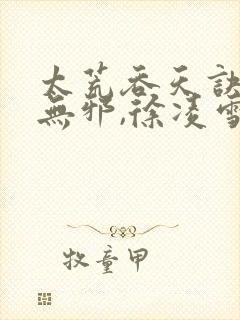 太荒吞天訣
無邪,徐凌雪
牧童甲